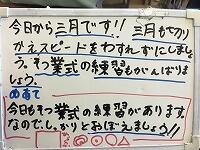 今日から三月です!! 三月もきり
かえスピードをわすれずにしましょ
う。そつ業式の練習もがんばりま
しょう。
めあて
今日もそつ業式の練習があります。
なので、しっかりとおぼえましょう!!